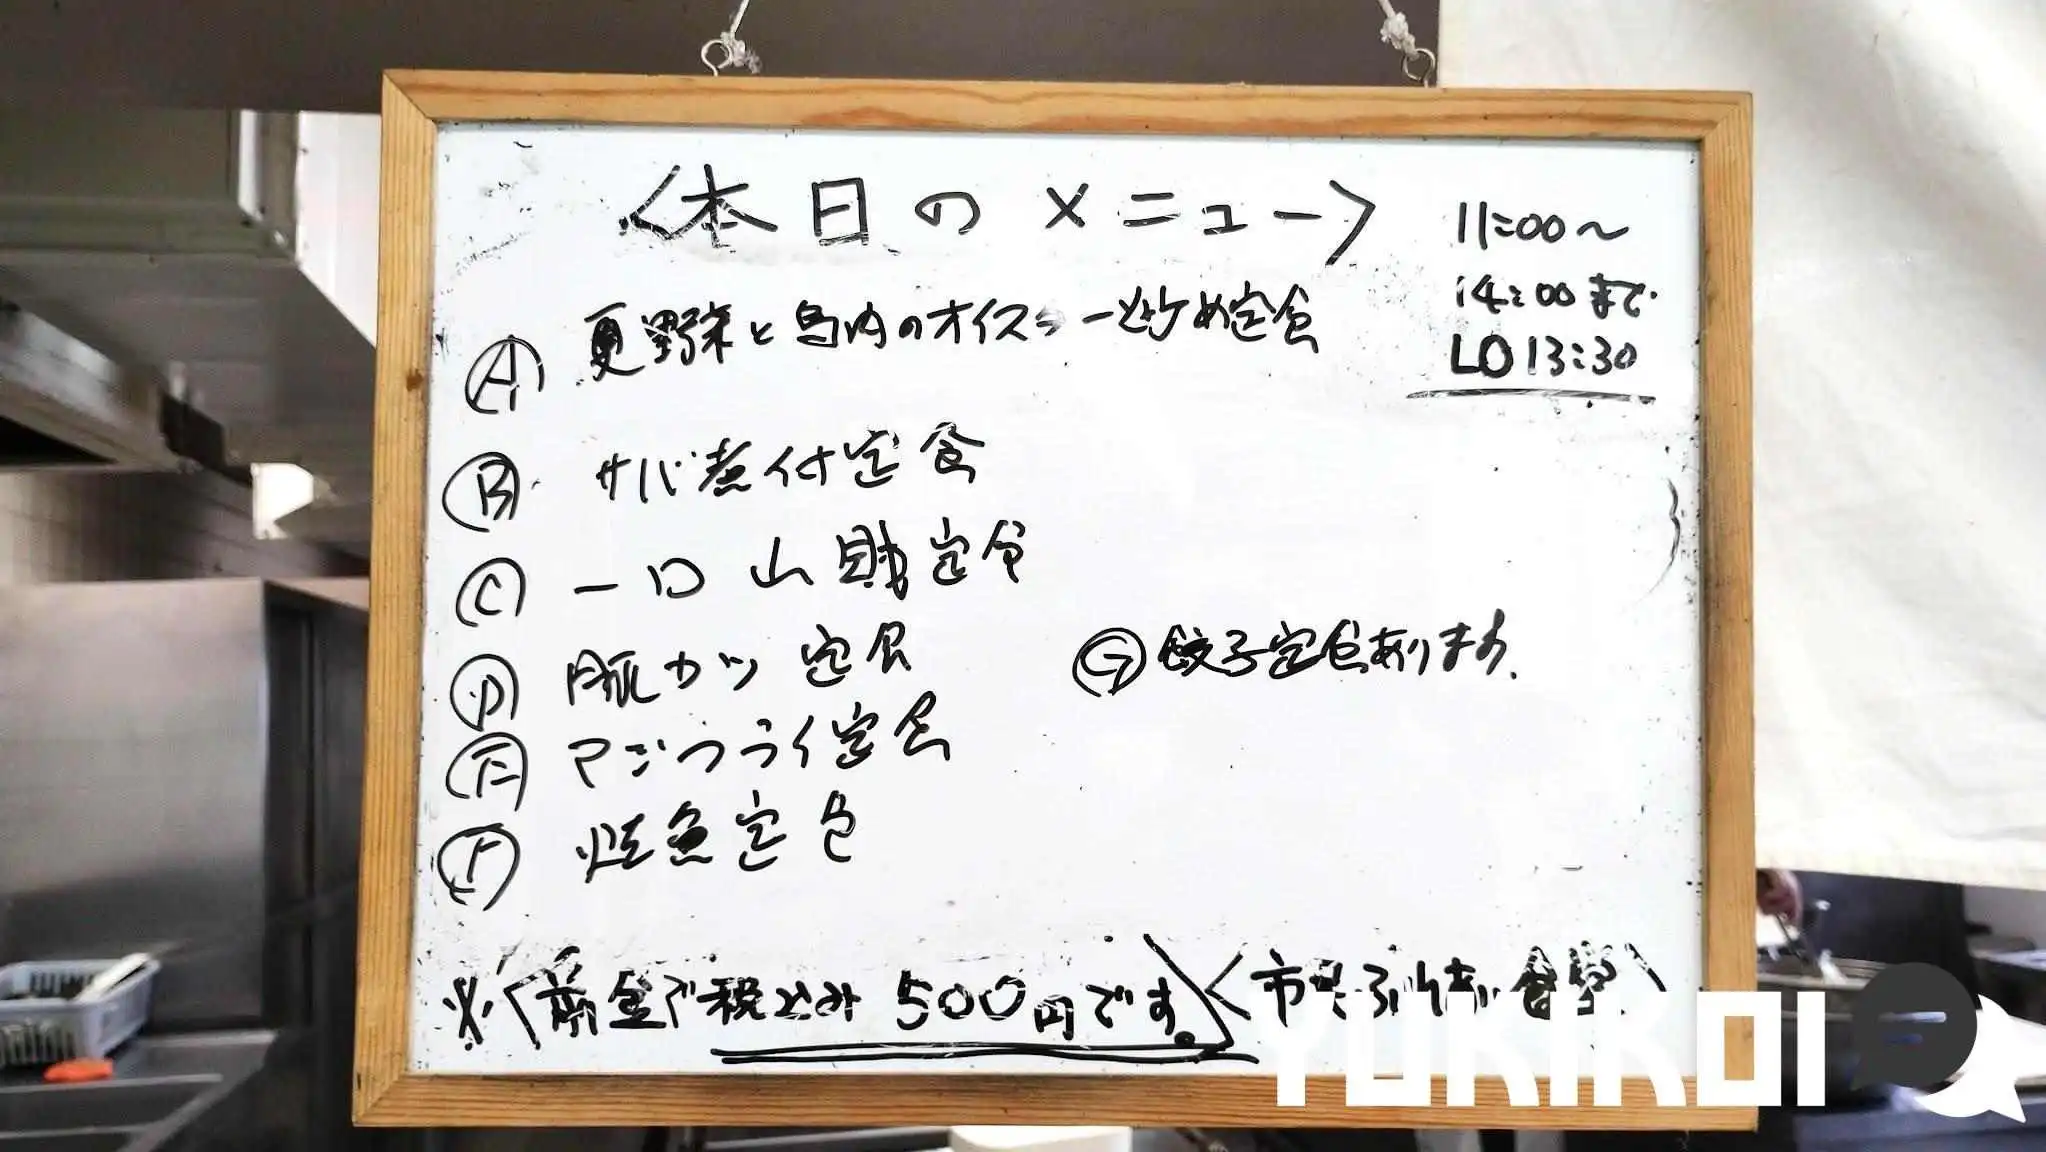 <本日のメニュー>
11:00～
14:00まで
LO 13:30
Ⓐ 夏野菜と鳥肉のオイスター炒め定食
Ⓑ サバ煮付定食
Ⓒ 一口山賊定食
Ⓓ 豚カツ定食
Ⓔ アジフライ定食
Ⓕ 焼魚定食
Ⓖ 餃子定食あります。
※<前金で税込み500円です。>
<市 食堂>
YUKIKOI